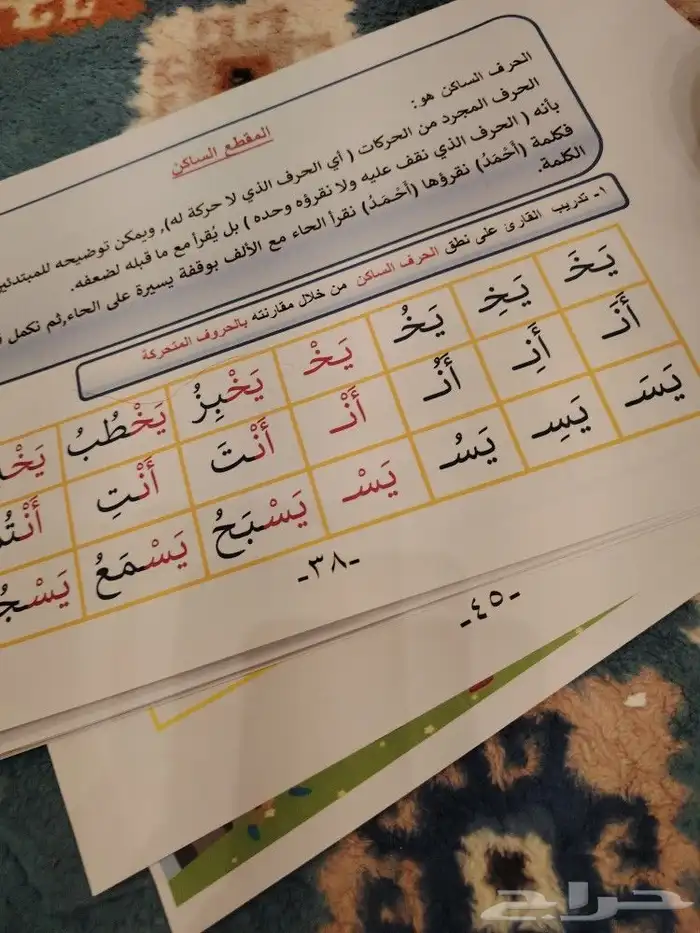 المقطع الساكن
الحرف الساكن هو:
الحرف المجرد من الحركات ( أي الحرف الذي لا حركة له), ويمكن توضيحه للمبتدئين
بأنه ( الحرف الذي نقف عليه ولا نقرؤه وحده ) بل يُقرأ مع ما قبله لضعفه.
فكلمة (أَحْمَدُ) نقرؤها (أَحْمَدُ) نقرأ الحاء مع الألف بوقفة يسيرة على الحاء,ثم نكمل
الكلمة.
١- تدريب القارئ على نطق الحرف الساكن من خلال مقارنته بالحروف المتحركة
يَخَ يَخِ يَخُ يَخْ يَخْبِزُ يَخْطُبُ
أَنَـ أَنِـ أَنُـ أَنْـ أَنْتَ أَنْتِ
يَسَـ يَسِـ يَسُـ يَسْـ يَسْبَحُ يَسْمَعُ
-٣٨-
-٤٥-
حراج